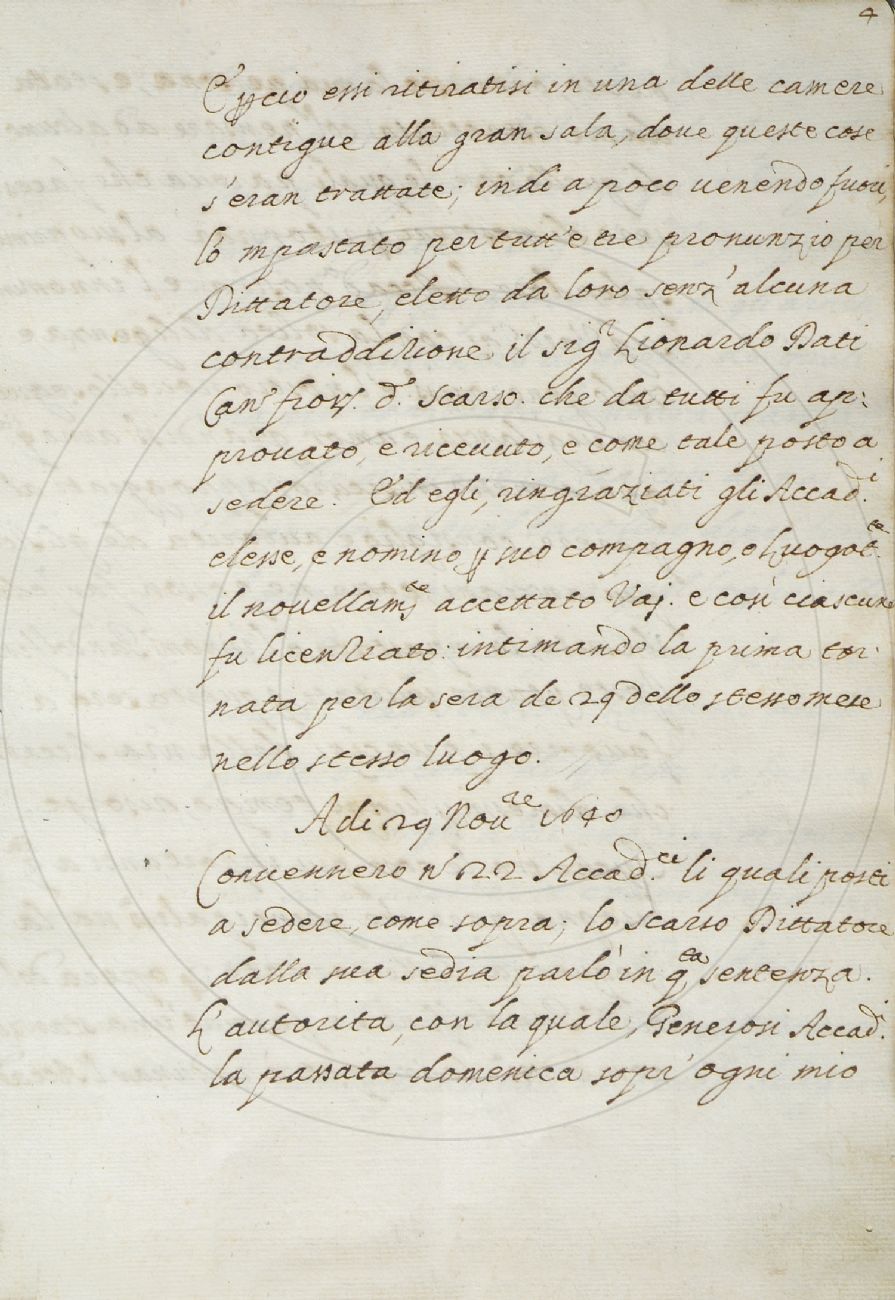 4
E ꝑ cio essi ritiratisi in una delle camere
contigue alla gran sala, doue queste cose
s'eran trattate; indi a poco uenendo fuori,
lo 'mpastato per tutt'e tre pronunzio per
Dittatore, eletto da loro senz'alcuna
contraddizione il sigr Lionardo Dati
Cano fior. d. Scarso. che da tutti fu ap:
prouato, e riceuuto, e come tale posto a
sedere. Ed egli, ringraziati gli Accadi.
elesse, e nomino ꝑ suo compagno, o Luogote.
il nouellamte accettato Vaj. e così ciascuno
fu licenziato: intimando la prima tor:
nata per la sera de 29 dello stesso mese
nello stesso luogo.
A di 29 Noure 1640
Conuennero no 22 Accadci. li quali posti
a sedere, come sopra; lo scarso Dittatore
dalla sua sedia parlò in qta sentenza.
L'autorita, con la quale, Generosi Accadi.
la passata domenica sopr'ogni mio